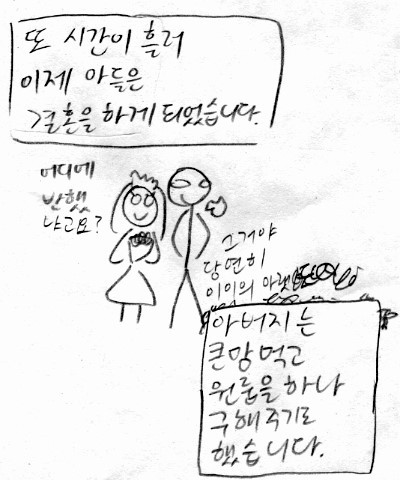 또 시간이 흘러
이제 아들은
결혼을 하게 되었습니다.
어디에
반했
냐고요?
그거야
당연히
이이의 아랫
아버지는
큰맘 먹고
원룸을 하나
구해주기로
했습니다.